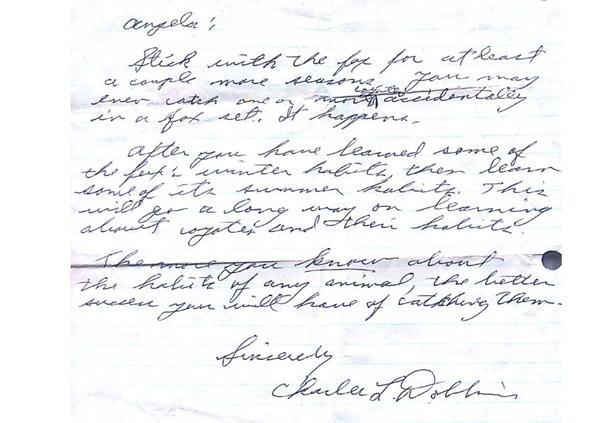 Angela:
Stick with the fox for at least
a couple more seasons. You may
even catch one or more coyotes accidentally
in a fox set. It happens.
After you have learned some of
the fox's winter habits, then learn
some of its summer habits. This
will go a long way on learning
about coyotes and their habits.
The more you know about
the habits of any animal, the better
success you will have of catching them.
Sincerely
Charles L. Dobbins